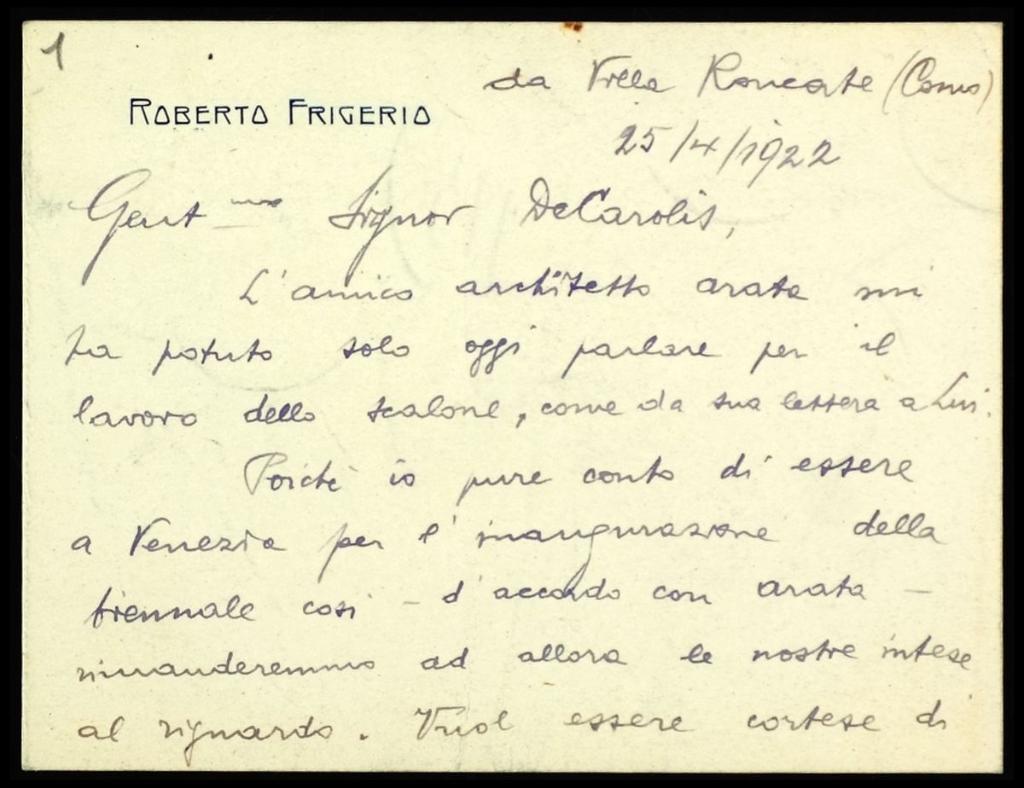 1
da Villa Roncate (Como)
ROBERTO FRIGERIO
25/4/1922
Gent mo Signor DeCarolis,
L'amico architetto arata mi
ha potuto solo oggi parlare per il
lavoro dello scalone, come da sua lettera a Lui.
Poiché io pure conto di essere
a Venezia per l'inaugurazione della
biennale così - d'accordo con arata -
rimanderemmo ad allora le nostre intese
al riguardo. Vuol essere cortese di